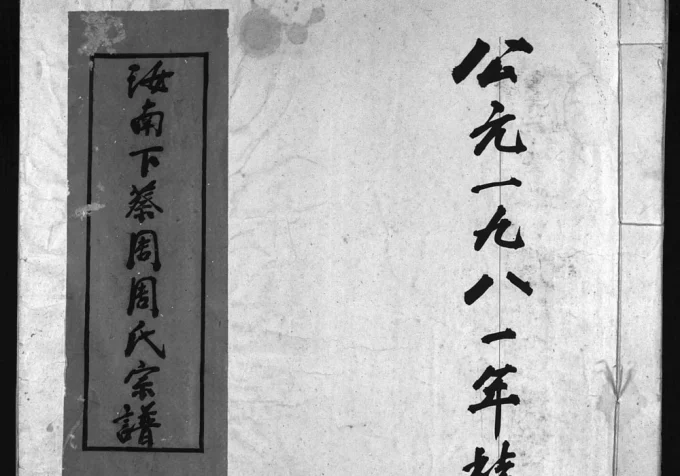 公元一九八一年
汝南下蔡周周氏宗譜